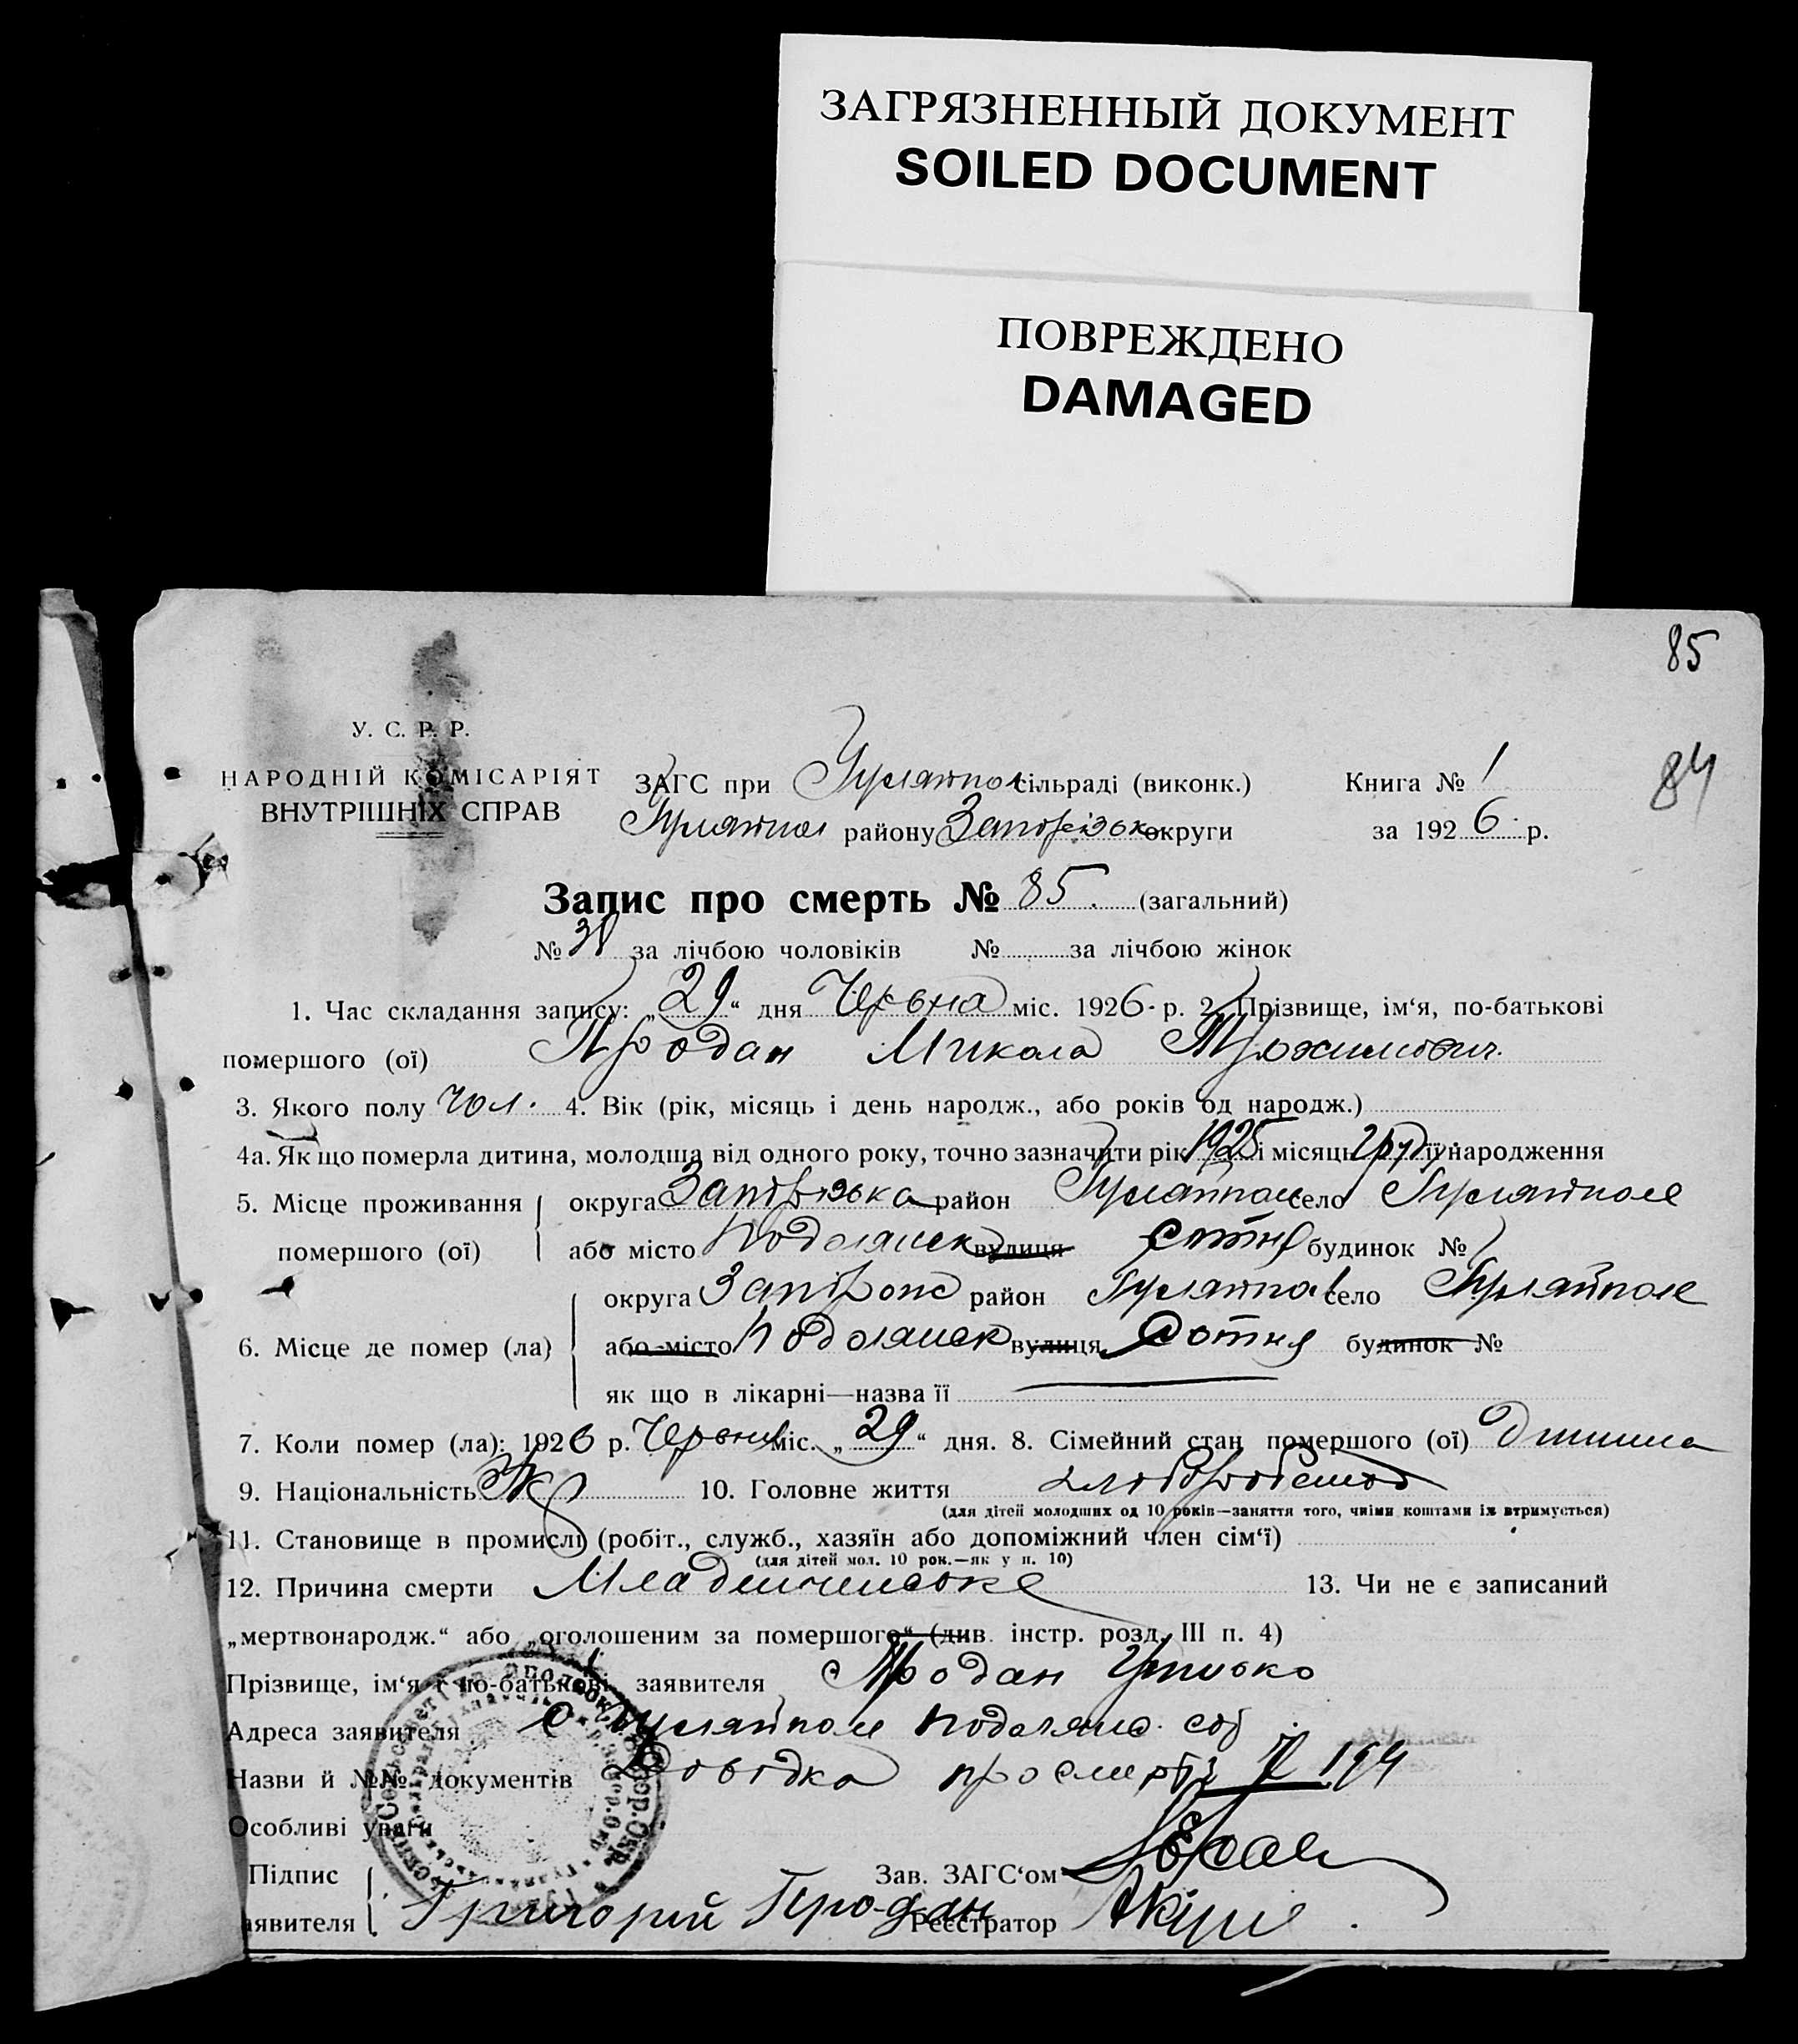 ЗАГРЯЗНЕННЫЙ ДОКУМЕНТ
SOILED DOCUMENT
ПОВРЕЖДЕНО
DAMAGED
85
84
У. С. Р. Р.
НАРОДНІЙ КОМІСАРІЯТ
ВНУТРІШНІХ СПРАВ
ЗАГС при Гуляйпол сільраді (виконк.) Книга № 1
Гуляйпол району Запоріэьк округи за 1926 р.
Запис про смерть № 85. (загальний)
№ 38 за лічбою чоловіків № за лічбою жінок
1. Час складання запису: „29“ дня Червня міс. 1926 р. 2. Прізвище, ім‘я, по-батькові
помершого (ої) Продан Микола
3. Якого полу чол. 4. Вік (рік, місяць і день народж., або років од народж.)
4а. Як що померла дитина, молодша від одного року, точно зазначити рік 1925 і місяць груд її народження
5. Місце проживання округа район Гуляйпол село Гуляйполе
помершого (ої) або місто Подолянськ вулиця сотня будинок №
округа Запорож район Гуляйпол село Гуляйполе
6. Місце де помер (ла) або місто Подолянськ вулиця Сотня будинок №
як що в лікарні—назва її
7. Коли помер (ла): 1926 р. Червня міс. „29“ дня. 8. Сімейний стан помершого (ої) Дитина
9. Національність Укр 10. Головне життя хлібороб
(для дітей молодших од 10 років—заняття того, чиїми коштами їх втримується)
11. Становище в промислі (робіт., служб., хазяїн або допоміжний член сім‘ї)
(для дітей мол. 10 рок.—як у п. 10)
12. Причина смерти Младенческе 13. Чи не є записаний
„мертвонародж.“ або „оголошеним за помершого“ (див. інстр. розд. III п. 4)
Прізвище, ім‘я і по-батькові заявителя Продан
Адреса заявителя с Гуляйполе Подолянс. сот
Назви й №№ документів Довідка про смерть № 194
Особливі уваги
Підпис Зав. ЗАГС‘ом
заявителя Григорий Продан Реєстратор